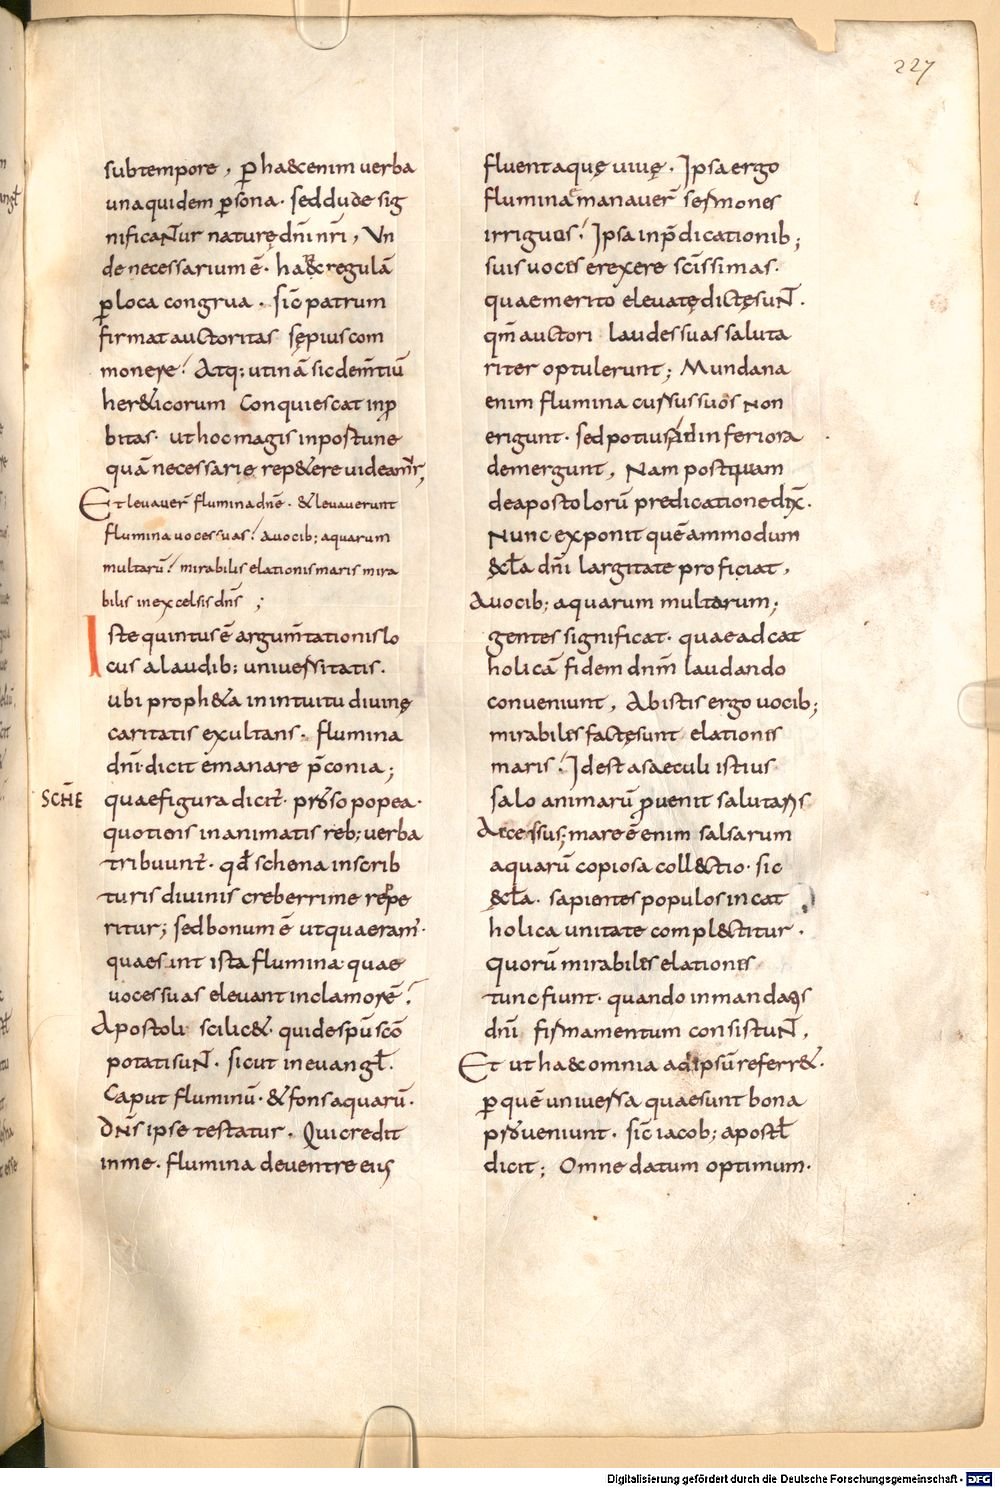 227
subtempore, p̱ haecenim uerba
unaquidem p̱sona · sedduae sig
nificantur naturę dn̄i nr̄i, Vn
de necessarium ē · haec regulā
p̱ loca congrua · sic̄ patrum
firmat auctoritas sępius com
monere! Atq; utinā sic dem̄tiū
her&icorum Conquiescat inp̱
bitas · ut hoc magis inpostune
quā necessarie rep&ere uideam̄r,
Et leuauer̄ flumina dn̄e · & leuauerunt
flumina uoces suas! auocib; aquarum
multarū! mirabilis elationis maris mira
bilis in excelsis dn̄s ;
Iste quintus ē argum̄tationis lo
cus alaudib; uniuersitatis ·
ubi proph&a in intuitu diuinę
caritatis exultans · flumina
dn̄i · dicit emanare p̄conia ;
SCHE
quae figura dicit̄ · prosopopea ·
quotiens inanimatis reb; uerba
tribuunt̄ · qđ schema in scrib
turis diuinis creberrime reppe
ritur ; sed bonum ē ut quaeram̄ ·
quae sint ista flumina quae
uoces suas eleuant in clamorē!
Apostoli scilic& · qui de sp̄u sc̄o
potati sunt · sicut in euangł ·
Caput fluminū · & fons aquarū ·
Dn̄s ipse testatur · Qui credit
in me · flumina de uentre eius
fluent aquę uiuę · Ipsa ergo
flumina manauer̄ sermones
irriguos! Ipsa in p̄dicationib;
suis uoces erexere sc̄issimas ·
quae merito eleuatę dictę sunt ·
qm̄ auctori laudes suas saluta
riter optulerunt ; Mundana
enim flumina cursus suos non
erigunt · sed potius ad inferiora
demergunt, Nam postquam
de apostolorū predicatione dix̄ ·
Nunc exponit quēammodum
&cła dn̄i largitate proficiat,
Auocib; aquarum multarum ;
gentes significat · quae ad cat
holicā fidem dnm̄ laudando
conueniunt, Ab istis ergo uocib;
mirabiles factę sunt elationes
maris! Id est a saeculi istius
salo animarū p̱uenit salutaris
Accessus ; mare ē enim salsarum
aquarū copiosa coll&ctio · sic
&cła · sapientes populos in cat
holica unitate compl&ctitur ·
quorū mirabiles elationes
tunc fiunt · quando in mandatis
dn̄i firmamentum consistunt,
Et ut haec omnia ad ipsū referr& ·
p̱ quē uniuersa quae sunt bona
proueniunt · sic̄ iacob; apostł
dicit ; Omne datum optimum ·
Digitalisierung gefördert durch die Deutsche Forschungsgemeinschaft - DFG